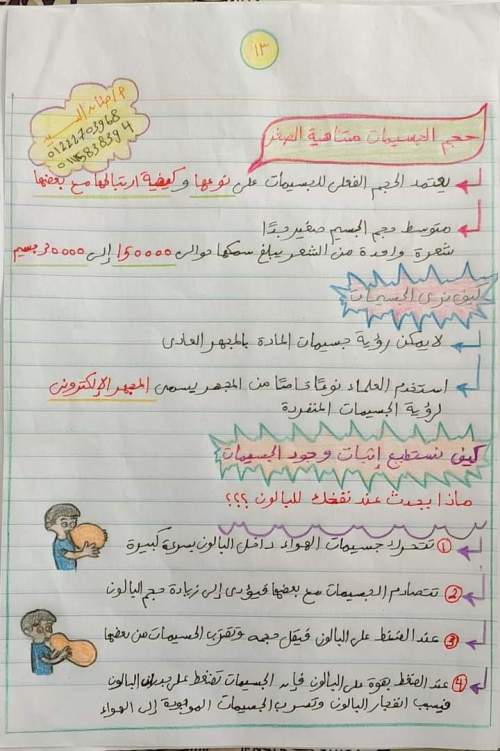 ١٣
م/ صفاء السيد
01222703968
حجم الجسيمات متناهية الصغر
يعتمد الحجم الفعلى للجسيمات على نوعها وكيفية ارتباطها مع بعضها
متوسط حجم الجسيم صغير جدًا
شعرة واحدة من الشعر يبلغ سمكها حوالى 150000 إلى 300000 جسيم
كيف نرى الجسيمات
لا يمكن رؤية جسيمات المادة بالمجهر العادى
استخدم العلماء نوعًا خاصًا من المجهر يسمى المجهر الإلكترونى
لرؤية الجسيمات المنفردة
كيف نستطيع إثبات وجود الجسيمات
ماذا يحدث عند نفخك للبالون ؟؟؟
1 تتحرك جسيمات الهواء داخل البالون بسرعة كبيرة
2 تتصادم الجسيمات مع بعضها فيؤدى إلى زيادة حجم البالون
3 عند الضغط على البالون فيقل حجمه وتقترب الجسيمات من بعضها
4 عند الضغط بقوة على البالون فإن الجسيمات تضغط على جدران البالون
فيسبب انفجار البالون وتتسرب الجسيمات الموجودة إلى الهواء